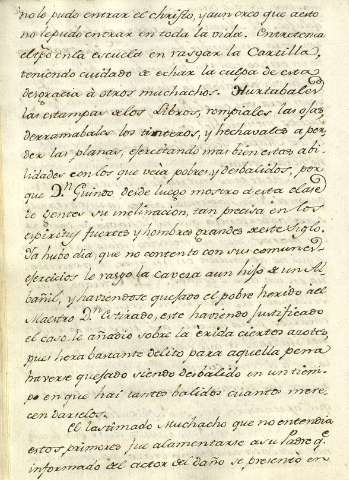 no lo pudo entrar el christo, y aun creo que a esto
no le pudo entrar en toda la vida. Entretenia
el tpo en la escuela en rasgar la Cartilla,
teniendo cuidado de echar la culpa de esta
desgracia à otros muchachos. Hurtabales
las estampas de los Libros, rompiales las ojas
derramabales los tinteros, y hechavales a per
der las planas, exercitando mas bien estas abi
lidades con los que veia pobres y desbalidos, por
que Dn Guindo desde luego mostro à esta clase
de gentes su inclinacion, tan precisa en los
espiritus fuertes y hombres grandes de este Siglo.
Ya hubo dia, que no contento con sus comunes
exercicios le rasgo la cavera a un hijo de un Al
bañil, y haviendose quejado el pobre herido al
Maestro Dn Estirado, este haviendo justificado
el caso le añadio sobre la erida ciertos azotes,
pues hera bastante delito para aquella pena
haverse quejado siendo desbalido en un tiem
po en que hai tantos balidos cuantos mere
cen darselos.
El lastimado Muchacho que no entendia
estos primores fue a lamentarse a su Padre qe
informado del actor del daño se presento en